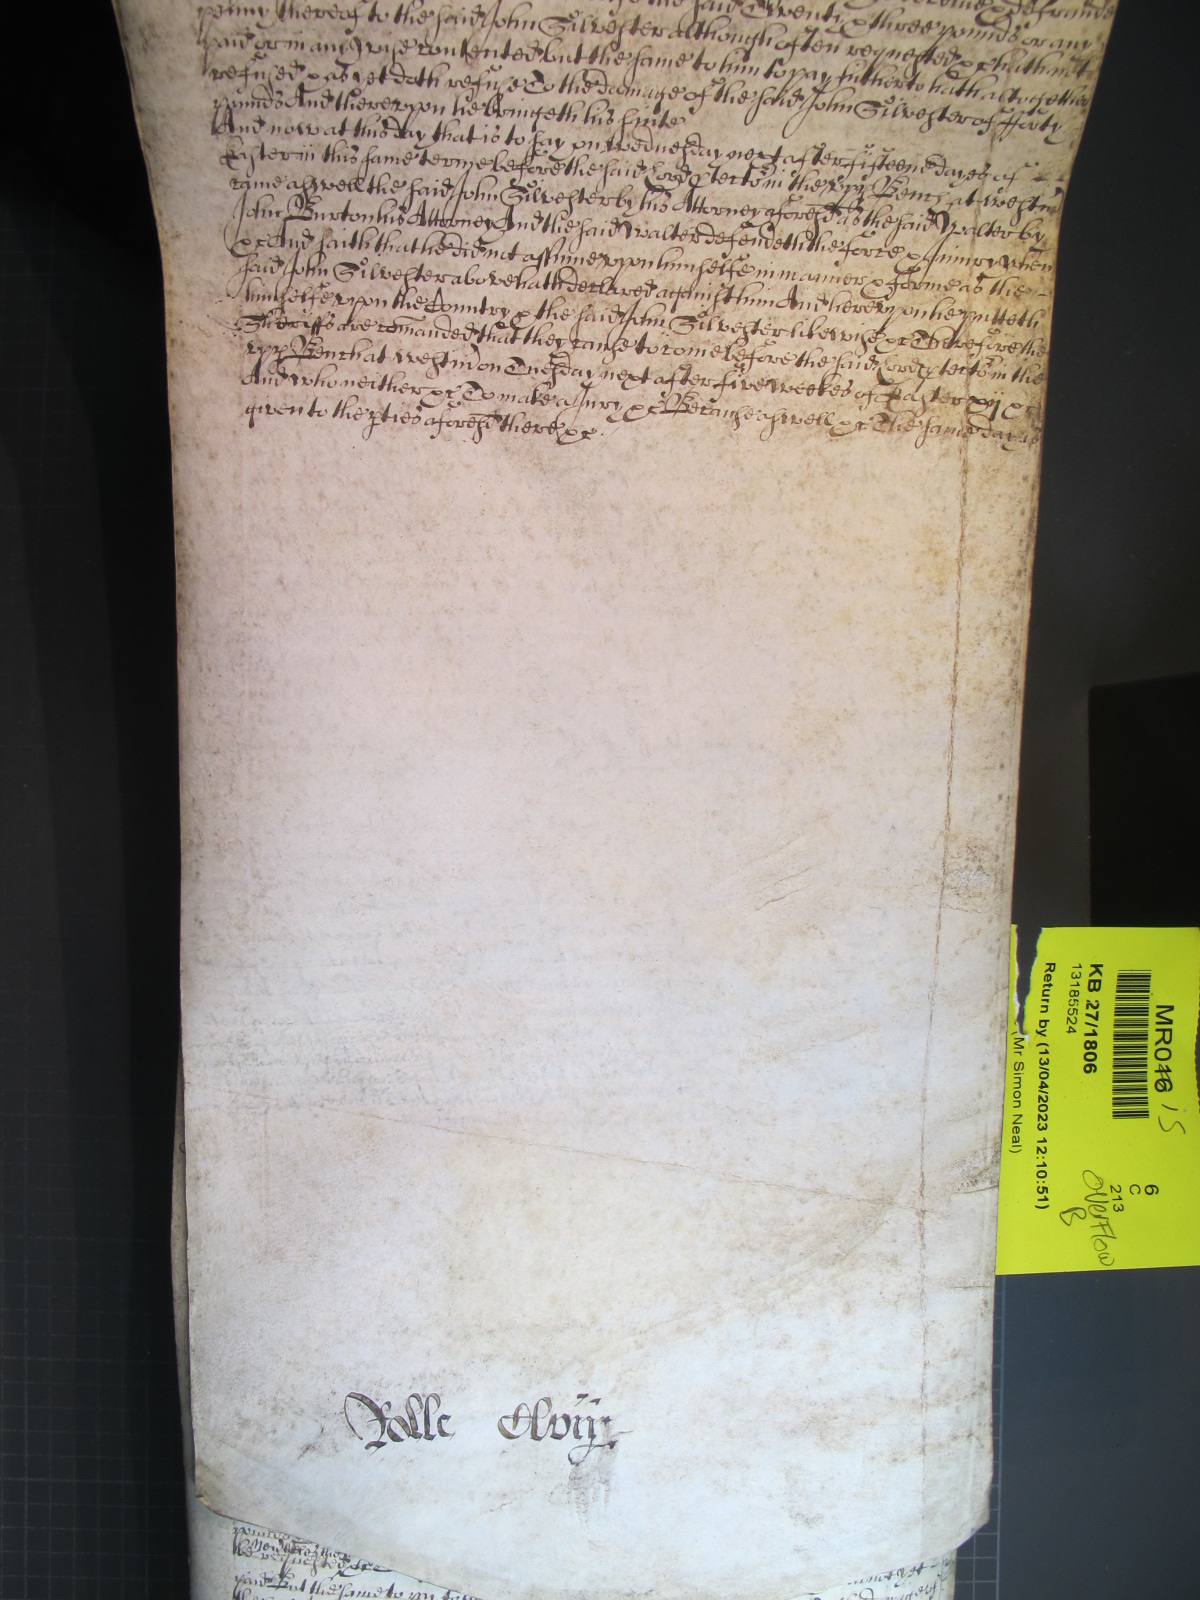 penny thereof to the said John Silvester although often requested &c hath not
paid or in any wise contented but the same to him to pay hitherto hath altogether
refused & as yet doth refuse To the damage of the said John Silvester of fforty
pounds And thereupon he bringeth his suite
And now at this day that is to say on Wednesday next after fifteene dayes of
Easter in this same terme before the said Lord Protector in the upp Bench at Westm
came aswell the said John Silvester by his Attorney aforesd as the said Walter by
John Burton his Attorney And the said Walter defendeth the force & iniury when
&c And saith that he did not assume upon himselfe in manner & forme as the
said John Silvester above hath declared against him And hereupon he putteth
himselfe upon the Country & the said John Silvester likewise &c Therefore the
Sheriffs are comanded that they cause to come before the said Lord Protector in the
upp Bench at Westm on Tuesday next after five weekes of Easter xij &c
And who neither &c To make a Jury &c Because aswell &c The same day is
given to the pties aforesd there &c.
Rolle Clviij
MR046 15
KB 27/1806
13185524
Return by (13/04/2023 12:10:51)
(Mr Simon Neal)
6
C
213
Overflow
B